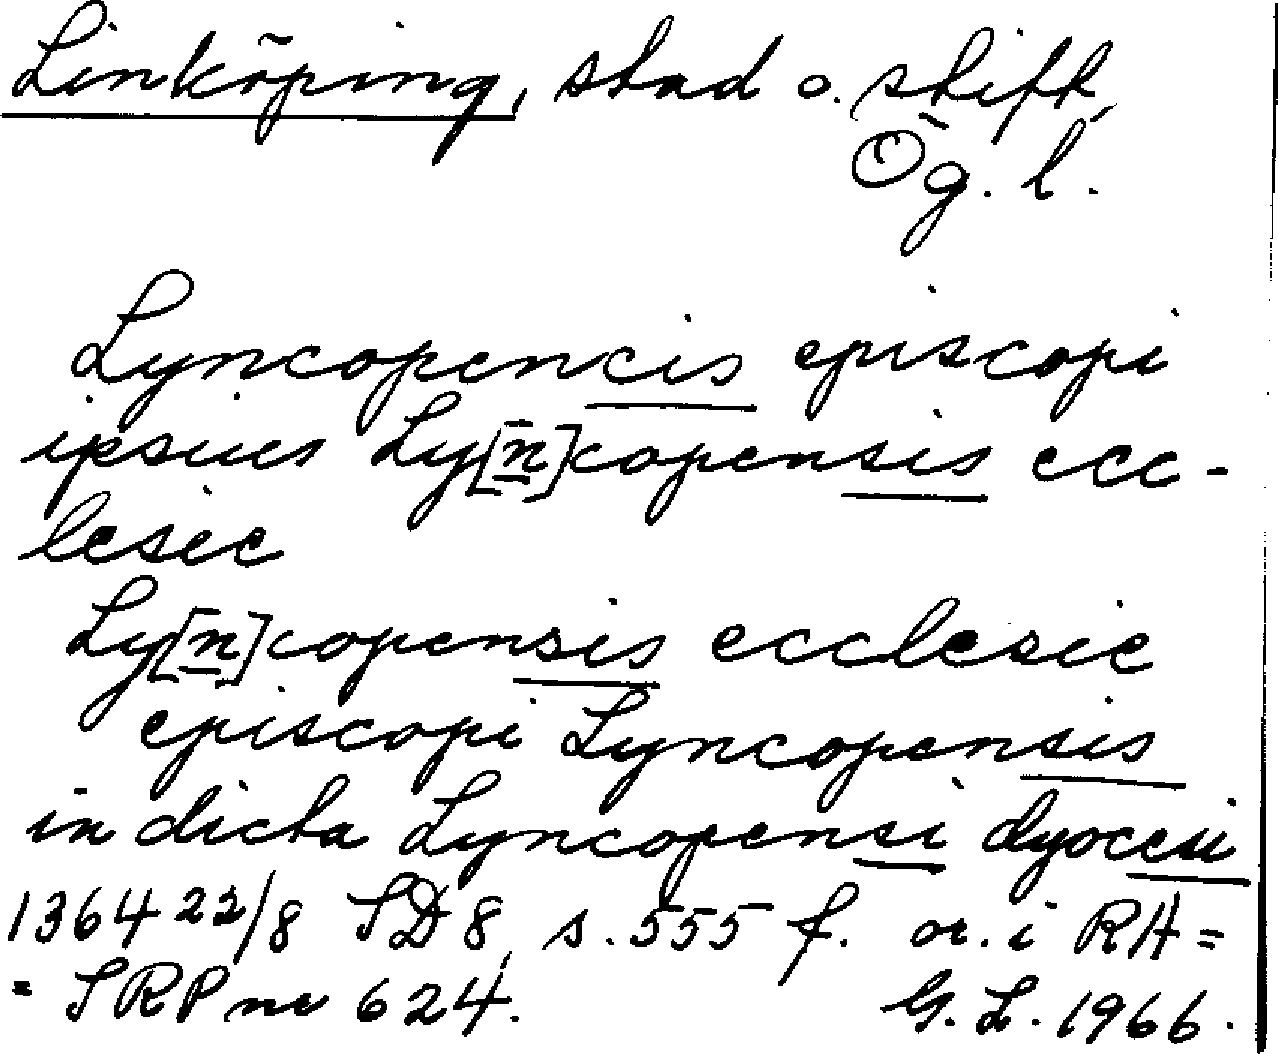 Linköping, stad o. stift,
Ög. l.
Lyncopencis episcopi
ipsius Ly[n]copensis ecc-
lesie
Ly[n]copensis ecclesie
episcopi Lyncopensis
in dicta Lyncopensi dyocesi
1364 22/8 SD 8, s. 555 f. or. i RA =
= SRP nr 624. G. L. 1966.